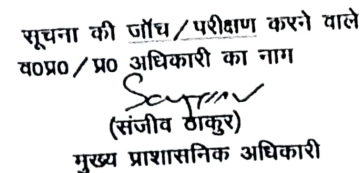 सूचना की जॉच / परीक्षण करने वाले
व०प्र० / प्र० अधिकारी का नाग
(संजीव ठाकुर)
मुख्य प्राशासनिक अधिकारी